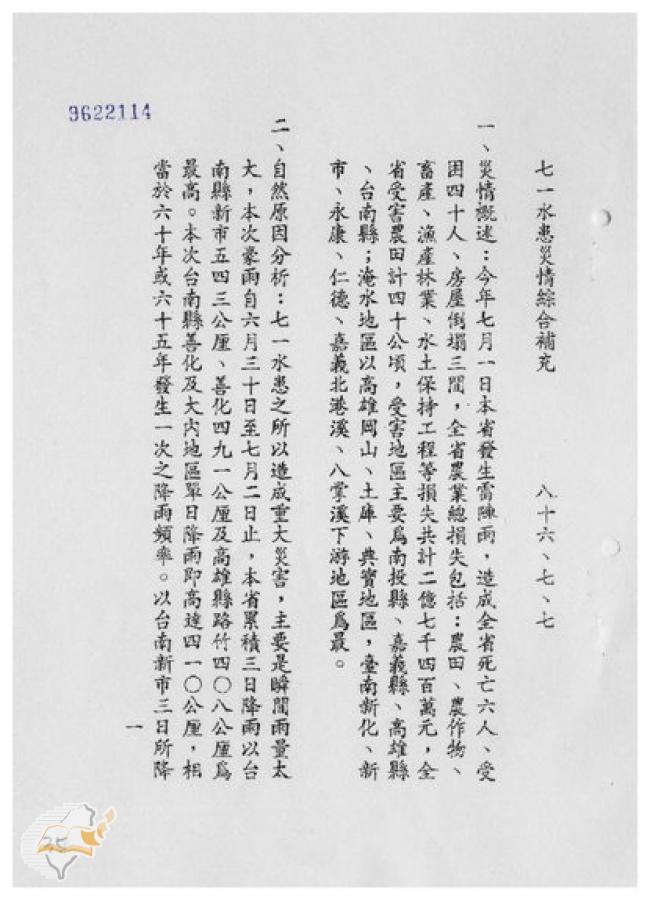 9622114
七一水患災情綜合補充　八十六、七、七
一、災情概述：今年七月一日本省發生雷陣雨，造成全省死亡六人、受
困四十人、房屋倒塌三間，全省農業總損失包括：農田、農作物、
畜產、漁產林業、水土保持工程等損失共計二億七千四百萬元，全
省受害農田計四十公頃，受害地區主要為南投縣、嘉義縣、高雄縣
、台南縣；淹水地區以高雄岡山、土庫、典寶地區，臺南新化、新
市、永康、仁德、嘉義北港溪、八掌溪下游地區為最。
二、自然原因分析：七一水患之所以造成重大災害，主要是瞬間雨量太
大，本次豪雨自六月三十日至七月二日止，本省累積三日降雨以台
南縣新市五四三公厘、善化四九一公厘及高雄縣路竹四〇八公厘為
最高。本次台南縣善化及大內地區單日降雨即高達四一〇公厘，相
當於六十年或六十五年發生一次之降雨頻率。以台南新市三日所降
一